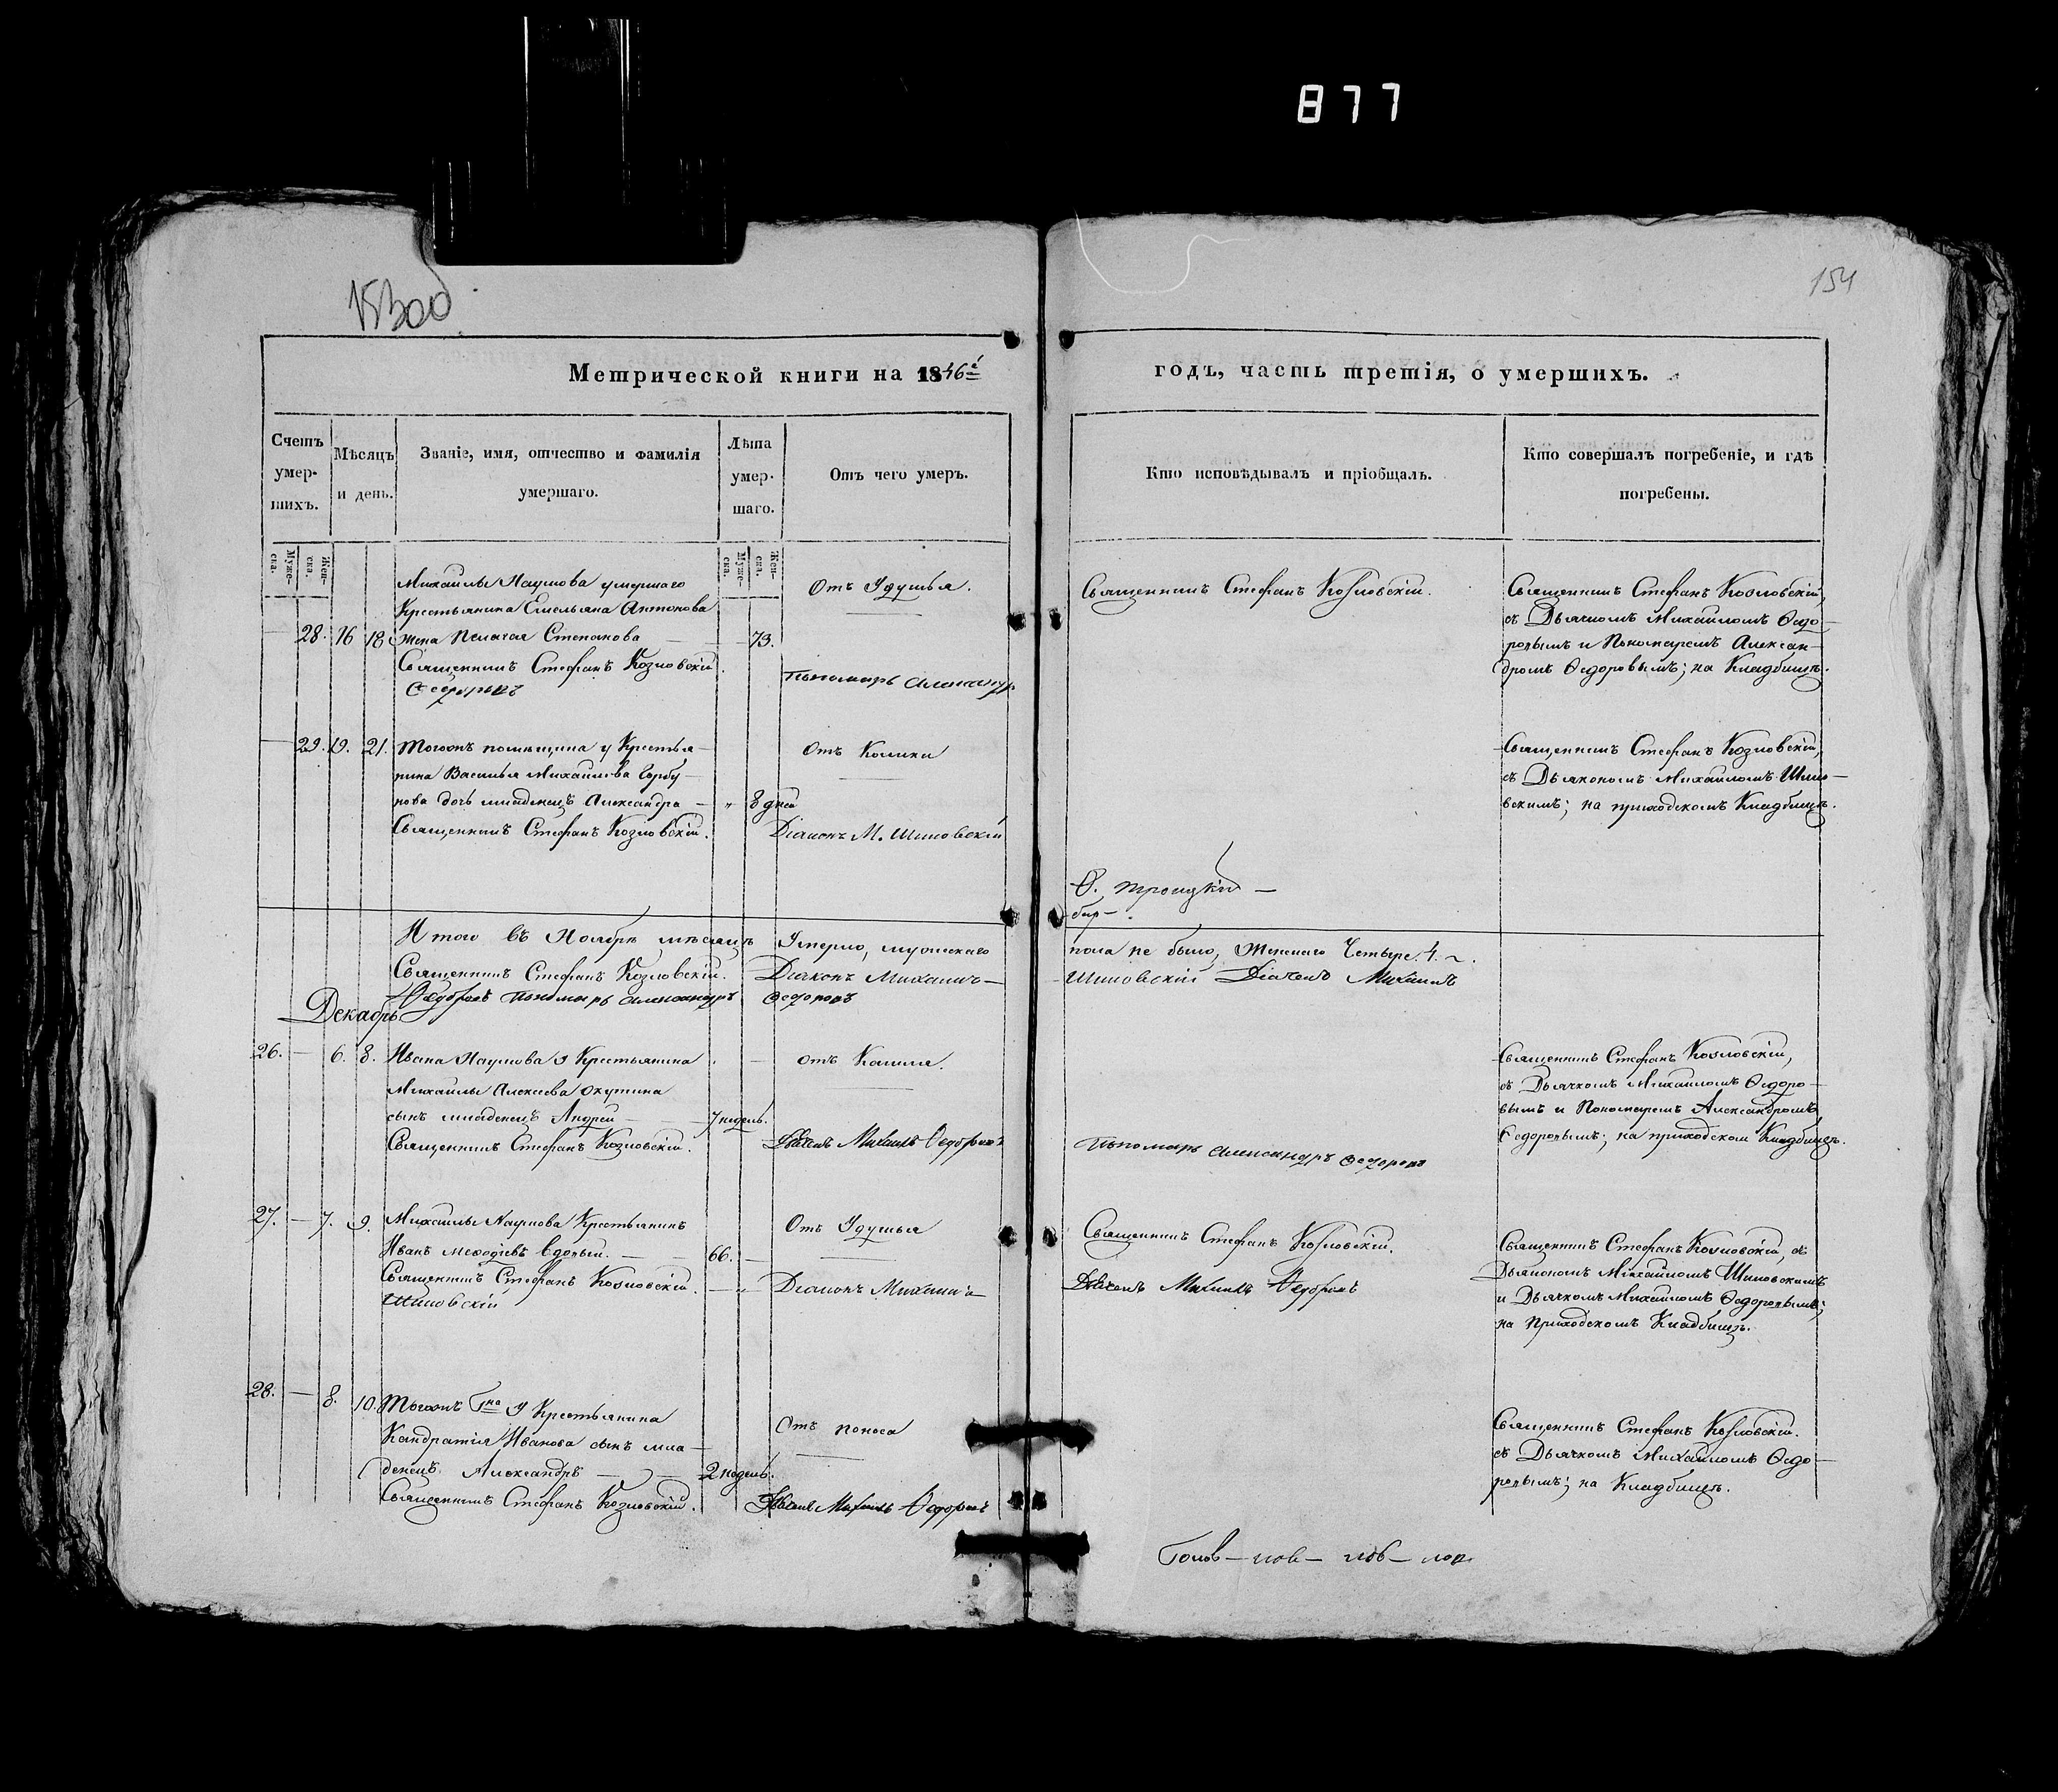 877
154
Метрической книги на 1846й
годъ, часть третія, о умершихъ.
Счетъ умер-шихъ.
Мѣсяцъ и день.
Званіе, имя, отчество и фамилія умершаго.
Лѣта умер-шаго.
Отъ чего умеръ.
Кто исповѣдывалъ и пріобщалъ.
Кто совершалъ погребеніе, и гдѣ погребены.
Муже-ска.
Жен-ска.
Муже-ска.
Жен-ска.
Михайлы Наумова умершаго
Крестьянина Емельяна Антонова
28. 16 18 жена Пелагея Степанова — 73.
Священникъ Стефанъ Козловскій.
Федоровъ
Отъ Удушья.
Пономарь Александръ
Священникъ Стефанъ Козловскій.
Священникъ Стефанъ Козловскій,
съ Дьячкомъ Михайломъ Ѳедо-
ровымъ и Пономаремъ Алексан-
дромъ Ѳедоровымъ; на Кладбищѣ.
29. 19. 21. Тогожъ помѣщика у Крестья-
нина Василья Михайлова Горбу-
нова дочь младенецъ Александра — " 8 дней
Священникъ Стефанъ Козловскій.
Отъ Колики
Діаконъ М. Шиловскій
Священникъ Стефанъ Козловскій,
съ Дьякономъ Михайломъ Шило-
вскимъ; на приходскомъ Кладбищѣ.
Ѳ. Троицкій —
Итого въ Ноябрѣ мѣсяцѣ Умерло, мужескаго
пола не было, Женскаго Четыре. 4.
Священникъ Стефанъ Козловскій. Діаконъ Михаилъ
Шиловскій Дьячекъ Михаилъ
Ѳедоровъ Пономарь Александръ Федоровъ
Декабрь
26. — 6. 8. Ивана Наумова у Крестьянина
Михайлы Алексеева Окутина
сынъ младенецъ Андрей — 7 недель.
Священникъ Стефанъ Козловскій.
отъ Кашля.
Дьячекъ Михаилъ Ѳедоровъ
Пономарь Александръ Федоровъ
Священникъ Стефанъ Козловскій,
съ Дьячкомъ Михайломъ Ѳедоро-
вымъ и Пономаремъ Александромъ
Ѳедоровымъ; на приходском Кладбищѣ.
27. — 7. 9. Михайлы Наумова Крестьянинъ
Иванъ Меѳодіевъ вдовый. — 66. —
Священникъ Стефанъ Козловскій.
Шиловскій
Отъ Удушья
Діаконъ Михаилъ
Священникъ Стефанъ Козловскій.
Дьячекъ Михаилъ Ѳедоровъ
Священникъ Стефанъ Козловскій, съ
Дьякономъ Михайломъ Шиловскимъ
и Дьячкомъ Михайломъ Ѳедоровымъ;
на Приходскомъ Кладбищѣ.
28. — 8. 10. Тогожъ Гна У Крестьянина
Кандратія Иванова сынъ мла-
денецъ Александръ — 2 недель.
Священникъ Стефанъ Козловскій.
Отъ поноса
Дьячекъ Михаилъ Ѳедоровъ
Священникъ Стефанъ Козловскій.
съ Дьячкомъ Михайломъ Ѳедо-
ровымъ; на Кладбищѣ.